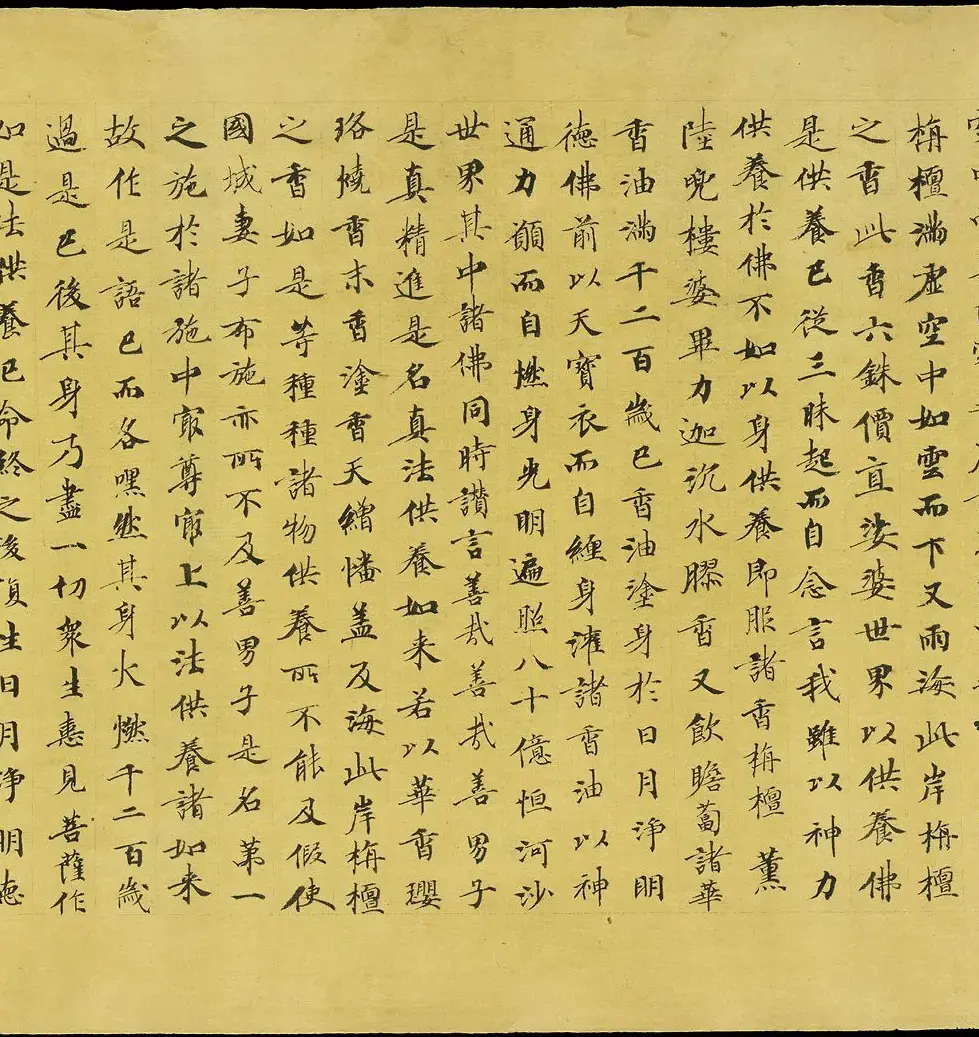 栴檀滿虛空中如雲而下又雨海此岸栴檀
之香此香六銖價直娑婆世界以供養佛
是供養已從三昧起而自念言我雖以神力
供養於佛不如以身供養即服諸香栴檀薰
陸兜樓婆畢力迦沉水膠香又飲瞻蔔諸華
香油滿千二百歲已香油塗身於日月淨明
德佛前以天寶衣而自纏身灌諸香油以神
通力願而自燃身光明遍照八十億恒河沙
世界其中諸佛同時讃言善哉善哉善男子
是真精進是名真法供養如来若以華香瓔
珞燒香末香塗香天繒幡盖及海此岸栴檀
之香如是等種種諸物供養所不能及假使
國城妻子布施亦所不及善男子是名第一
之施於諸施中㝡尊㝡上以法供養諸如来
故作是語已而各嘿然其身火燃千二百歲
過是已後其身乃盡一切衆生憙見菩薩作
如是法供養已命終之後復生日月淨明德